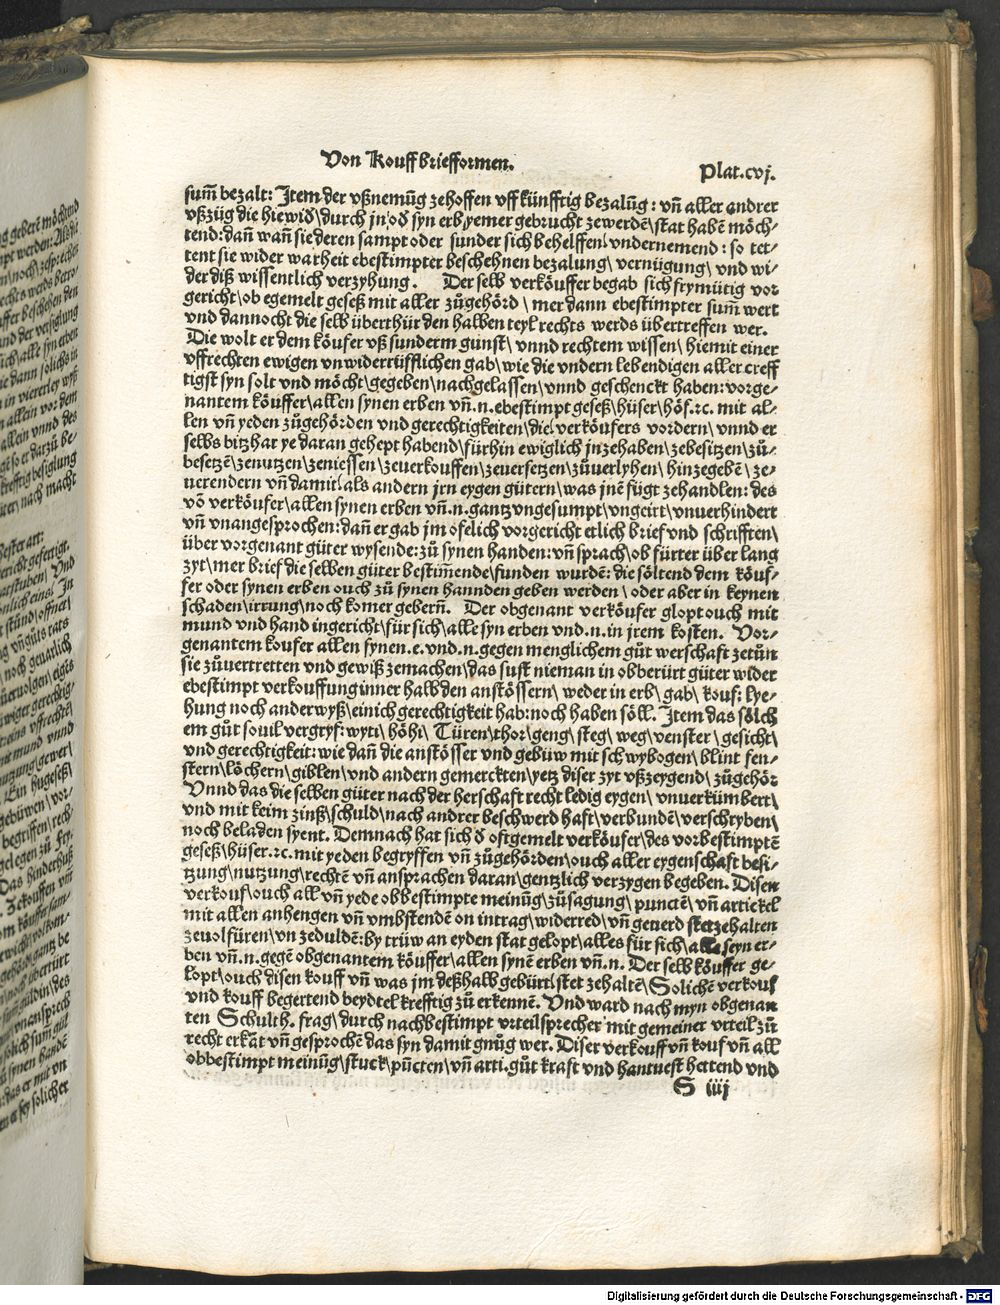 Von Kouff briefformen.
Plat.cvj.
sum̄ bezalt: Item der vßnemūg zehoffen vff künfftig bezalūg: vn̄ aller andrer
vßzüg die hiewid\durch jn od̕ syn erb yemer gebrucht zewerdē\stat habē möch-
tend: dan̄ wan̄ sie deren sampt oder sunder sich behelffen vndernemend: so tet-
tent sie wider warheit ebestimpter beschehnen bezalung\ vernügung\ vnd wi-
der diß wissentlich verzyhung. Der selb verköuffer begab sich frymütig vor
gericht\ob egemelt geseß mit aller zůgehörd\ mer dann ebestimpter sum̄ wert
vnd dannocht die selb überthür den halben teyl rechts werds übertreffen wer.
Die wolt er dem köufer vß sunderm gunst\ vnnd rechtem wissen\ hiemit einer
vffrechten ewigen vnwiderrüfflichen gab\wie die vndern lebendigen aller creff
tigst syn solt vnd möcht\gegeben\nachgelassen\vnnd geschenckt haben: vorge-
nantem köuffer\allen synen erben vn̄.n.ebestimpt geseß\hüser\höf.ꝛc. mit al-
len vn̄ yeden zůgehörden vnd gerechtigkeiten\die verköufers vordern\ vnnd er
selbs bitzhar ye daran gehept habend\fürhin ewiglich jnzehaben\zebesitzen\zů-
besetzē\zenutzen\zeniessen\zeuerkouffen\zeuersetzen\zůuerlyhen\hinzegebē\ze-
uerendern vn̄ damit\als andern jrn eygen gütern\was jnē fügt zehandlen: des
vō verköufer\allen synen erben vn̄.n.gantz vngesumpt\vngeirt\vnuerhindert
vn̄ vnangesprochen: dan̄ er gab jm ofelich vorgericht etlich brief vnd schrifften\
über vorgenant güter wysende: zů synen handen: vn̄ sprach\ob fürter über lang
zyt\mer brief die selben güter bestim̄ende\funden wurdē: die söltend dem köuf-
fer oder synen erben ouch zů synen hannden geben werden\ oder aber in keynen
schaden\irrung\noch komer gebern̄. Der obgenant verköufer glopt ouch mit
mund vnd hand in gericht\für sich\alle syn erben vnd.n.in jrem kosten. Vor-
genantem koufer allen synen.e.vnd.n.gegen menglichem gůt werschaft zetůn
sie zůuertretten vnd gewiß zemachen\das sust nieman in obberürt güter wider
ebestimpt verkouffung inner halb den anstössern\ weder in erb\gab\ kouf: lye-
hung noch anderwyß\einich gerechtigkeit hab: noch haben söll. Item das sölch
em gůt souil vergryf: wyti\ höhi\ Türen\thor\geng\steg\ weg\venster\gesicht\
vnd gerechtigkeit: wie dan̄ die anstösser vnd gebüw mit schwybogen\ blint fen-
stern\löchern\giblen\vnd andern gemerckten\yetz diser zyt vßzeygend\ zůgehör
Vnnd das die selben güter nach der herschaft recht ledig eygen\ vnuerkümbert\
vnd mit keim zinß\schuld\nach andrer beschwerd haft\verbundē\verschryben\
noch beladen syent. Demnach hat sich d̕ oftgemelt verköufer\des vorbestimptē
geseß\hüser.ꝛc.mit yeden begryffen vn̄ zůgehörden\ouch aller eygenschaft besi-
tzung\nutzung\rechtē vn̄ ansprachen daran\gentzlich verzygen begeben. Disen
verkouf\ouch all vn̄ yede obbestimpte meinūg\zůsagung\punctē\vn̄ artickel
mit allen anhengen vn̄ vmbstendē on intrag\widerred\vn̄ geuerd stetzehalten
zeuolfüren\vn zeduldē: by trüw an eyden stat gelopt\alles für sich\alle seyn er-
ben vn̄.n.gegē obgenantem köuffer\allen synē erben vn̄.n. Der selb köuffer ge-
lopt\ouch disen kouff vn̄ was jm deßhalb gebürt\stet zehaltē\Solichē verkouf
vnd kouff begertend beydtel krefftig zů erkennē. Vnd ward nach myn obgenan
ten Schulth. frag\durch nachbestimpt vrteilsprecher mit gemeiner vrteil zů
recht erkāt vn̄ gesprochē das syn damit gnůg wer. Diser verkouff vn̄ kouf vn̄ all
obbestimpt meinūg\stuck\pūcten\vn̄ arti.gůt kraft vnd hantuest hettend vnd
S iiij
Digitalisierung gefördert durch die Deutsche Forschungsgemeinschaft - DFG